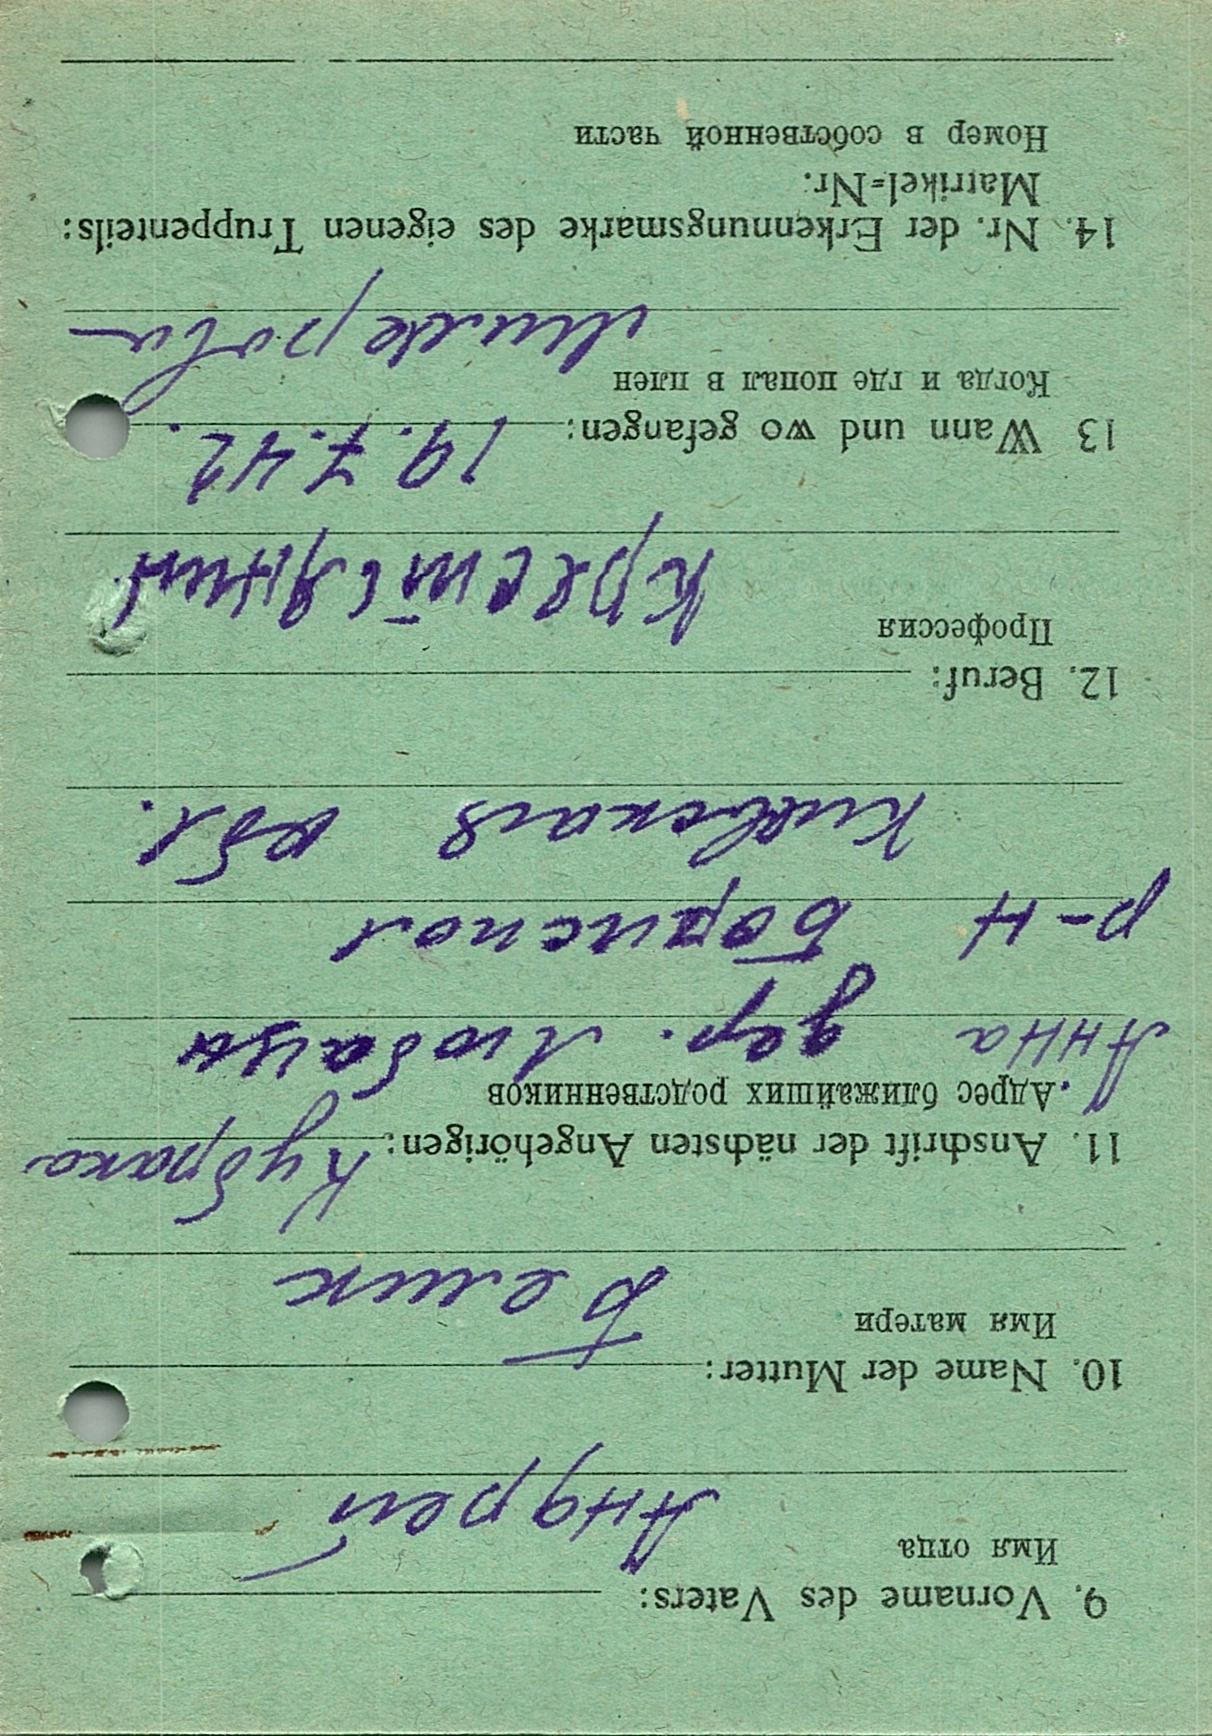 9. Vorname des Vaters:
Имя отца
Андрей
10. Name der Mutter:
Имя матери
Белик
11. Anschrift der nächsten Angehörigen: Кубрака
Адрес ближайших родственников
Анна дер. Любарцы
р-н Бориспол
Киевская обл.
12. Beruf:
Профессия
Крестьянин
13 Wann und wo gefangen: 19.7.42.
Когда и где попал в плен
Миллерово
14. Nr. der Erkennungsmarke des eigenen Truppenteils:
Matrikel=Nr:
Номер в собственной части